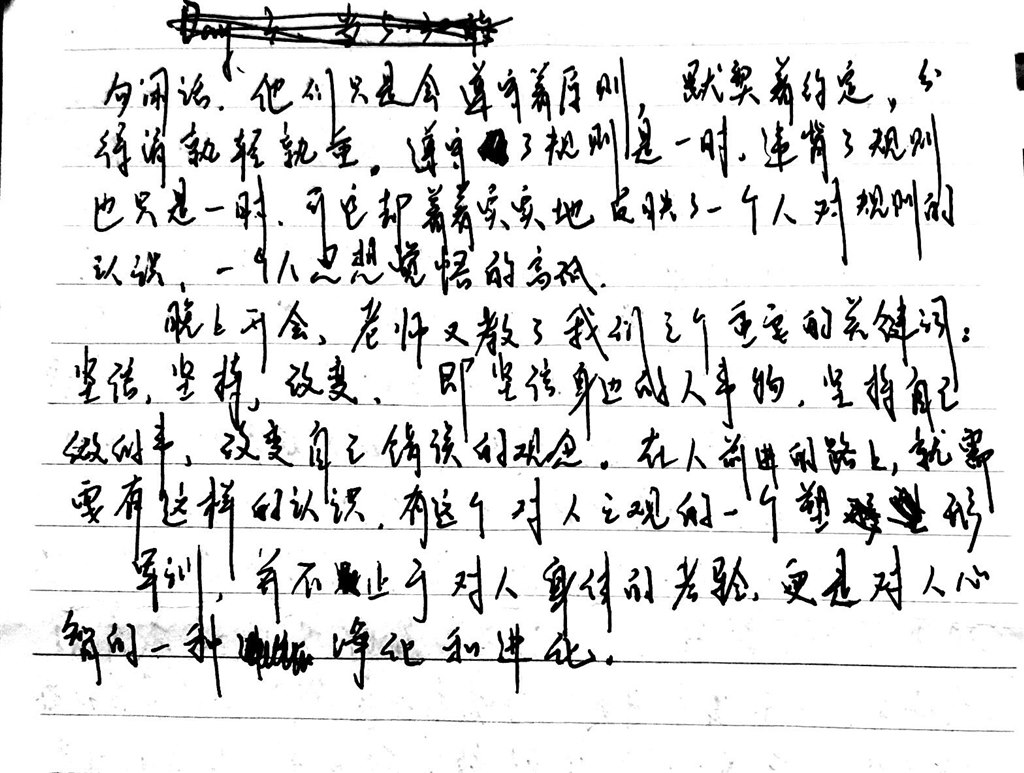 句闲话。他们只是会遵守着原则,默契着约定,分
得清孰轻孰重。遵守了规则是一时,违背了规则
也只是一时,可它却着着实实地反映了一个人对规则的
认识,一个人思想觉悟的高低。
晚上开会,老师又教了我们三个重要的关键词:
坚信,坚持,改变。即坚信身边的人事物,坚持自己
做的事,改变自己错误的观念。在人前进的路上,就需
要有这样的认识,有这个对人之观的一个塑形
军训,并不止于对人身体的考验,更是对人心
智的一种净化和进化。